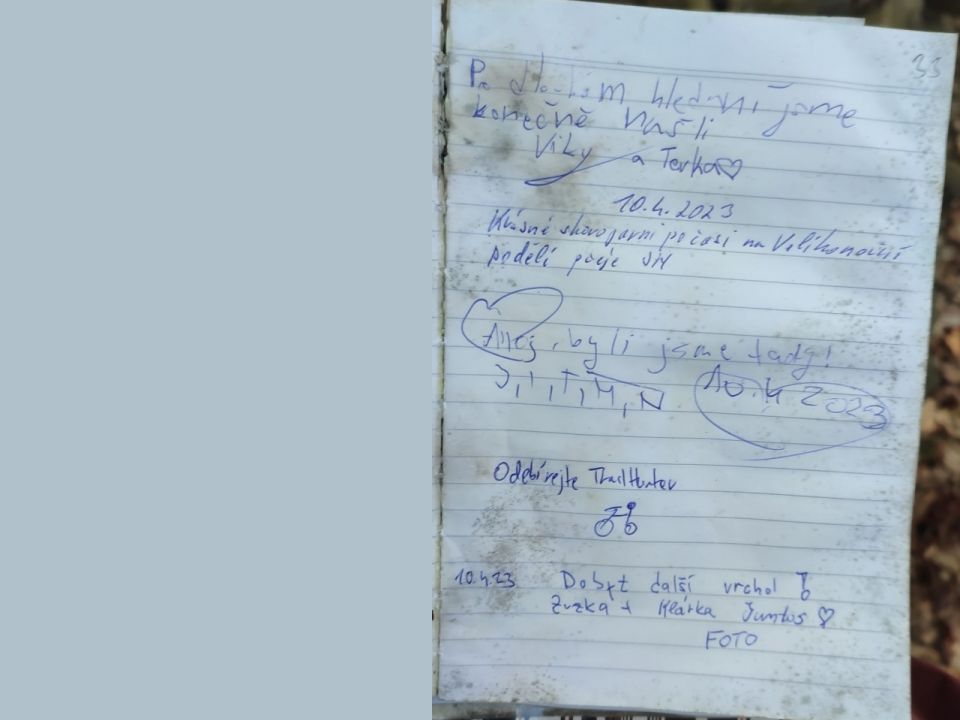 33
Po dlouhém hledání jsme
konečně našli
Viky a Terka
10.4.2023
Krásné skorojarní počasí na Velikonoční
pondělí
Ahoj, byli jsme tady!
J, T, T, M, N 10.4 2023
Odebírejte TrailHunter
10.4.23 Dobyt další vrchol
Zuzka + Klárka
FOTO